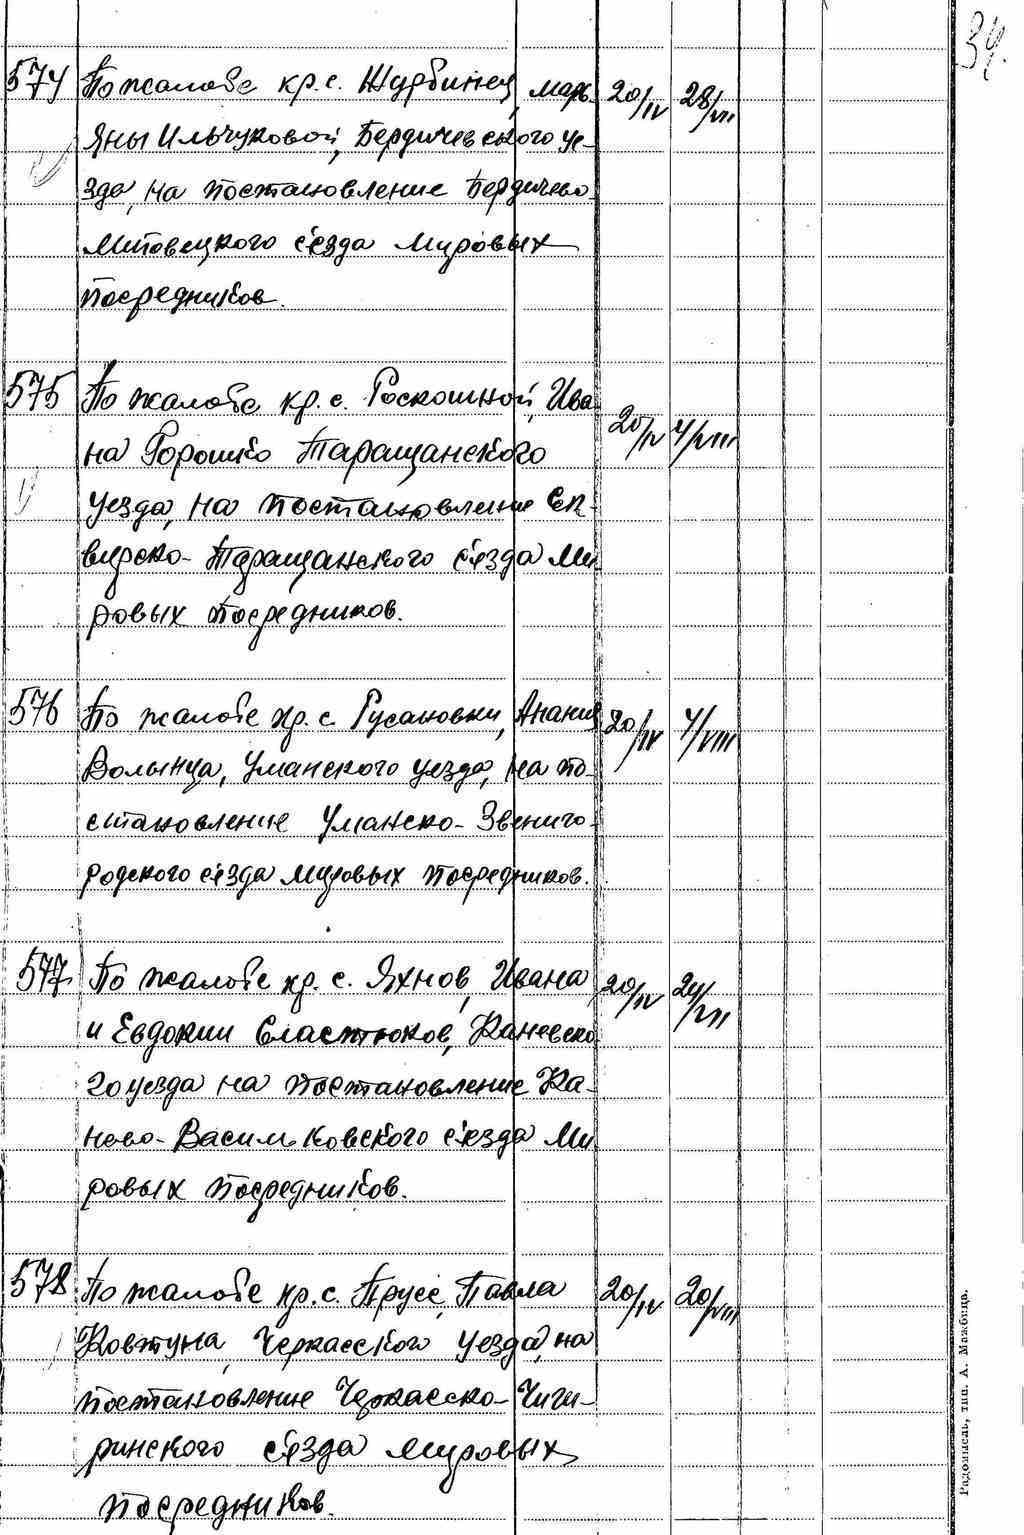 34.
574 По жалобе кр. с. Журбинец, Марь- 20/IV 28/VII
яны Ильчуковой, Бердичевского уе-
зда, на постановление Бердичево-
Липовецкого с'езда мировых
посредников.
575 По жалобе кр. с. Роскошной, Ива- 20/IV 4/VIII
на Горошко Таращанского
уезда, на постановление Ск-
вирско-Таращанского с'езда ми
ровых посредников.
576 По жалобе кр. с. Русаловки, Анания 20/IV 4/VIII
Волынца, Уманского уезда, на по-
становление Уманско-Звениго-
родского с'езда мировых посредников.
577 По жалобе кр. с. Яхнов, Ивана 20/IV 24/VII
и Евдокии Сластюков, Каневско-
го уезда на постановление Ка-
нево-Васильковского с'езда ми
ровых посредников.
578 По жалобе кр. с. Прусс, Павла 20/IV 20/VIII
Ковтуна, Черкасского уезда, на
постановление Черкасско-Чиги-
ринского с'езда мировых
посредников.
Радомысль, тип. А. Мажбица.